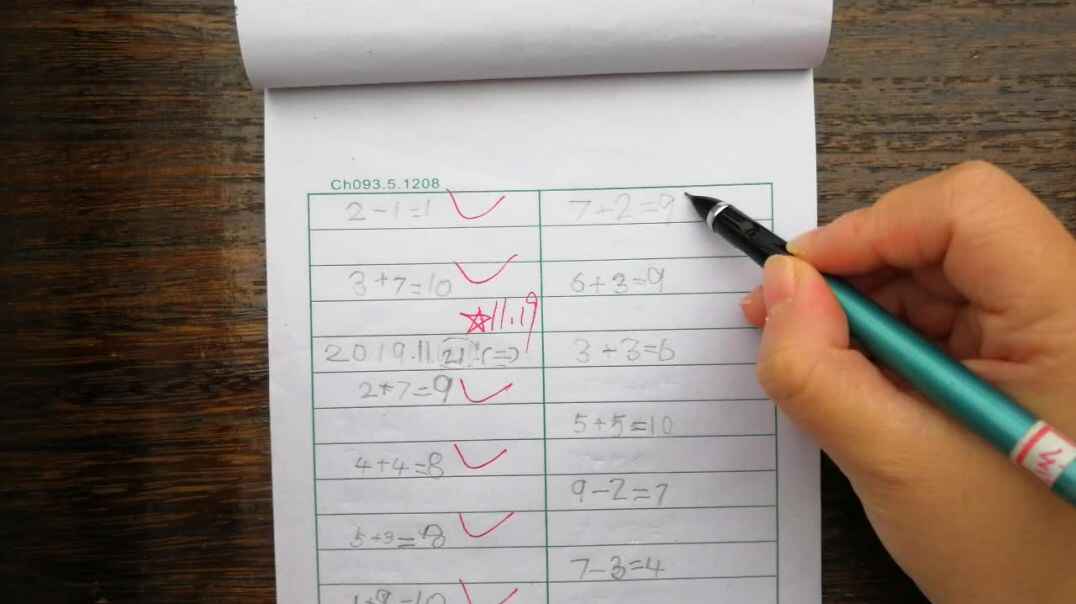 Ch093.5.1208
2-1=1
3+7=10
☆11.19
2019.11.21.(二)
2+7=9
4+4=8
5+3=8
1+9=10
7+2=9
6+3=9
3+3=6
5+5=10
9-2=7
7-3=4